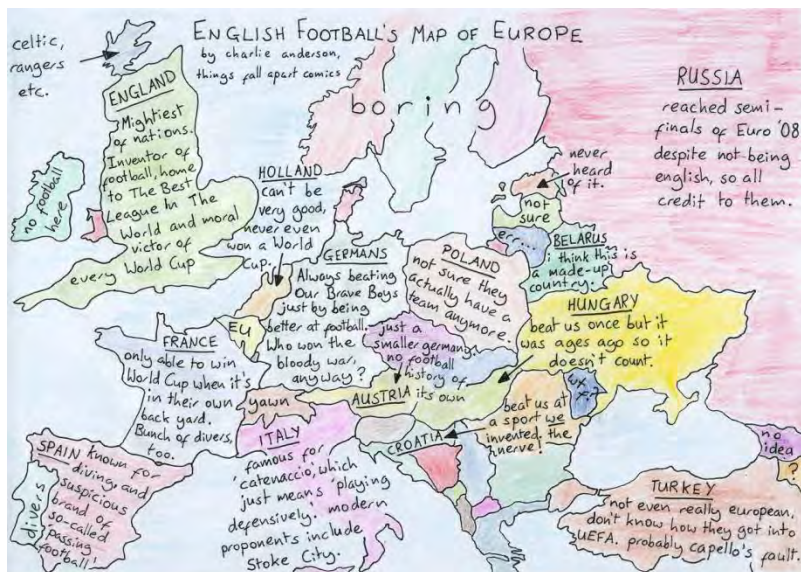 ENGLISH FOOTBALL'S MAP OF EUROPE
by charlie anderson,
things fall apart comics
celtic,
rangers
etc.
ENGLAND
Mightiest
of nations.
Inventor of
football, home
to The Best
League In The
World and moral
victor of
every World Cup
no football
here
boring
RUSSIA
reached semi-
finals of Euro '08
despite not being
english, so all
credit to them.
never
heard
of it.
not
sure
err...
BELARUS
i think this is
a made-up
country.
HOLLAND
can't be
very good,
never even
won a World
Cup.
GERMANS
Always beating
Our Brave Boys
just by being
better at football.
Who won the
bloody war,
anyway?
POLAND
not sure they
actually have a
team anymore.
HUNGARY
beat us once but it
was ages ago so it
doesn't count.
EU
just a
smaller germany.
no football
history of
its own
AUSTRIA
FRANCE
only able to win
World Cup when it's
in their own
back yard.
Bunch of divers,
too.
yawn
CROATIA
beat us at
a sport we
invented. the
nerve!
ITALY
famous for
'catenaccio,' which
just means 'playing
defensively.' modern
proponents include
Stoke City.
SPAIN known for
diving, and
suspicious
brand of
so-called
'passing
football'
divers
no
idea
?
TURKEY
not even really european.
don't know how they got into
UEFA. probably capello's fault.